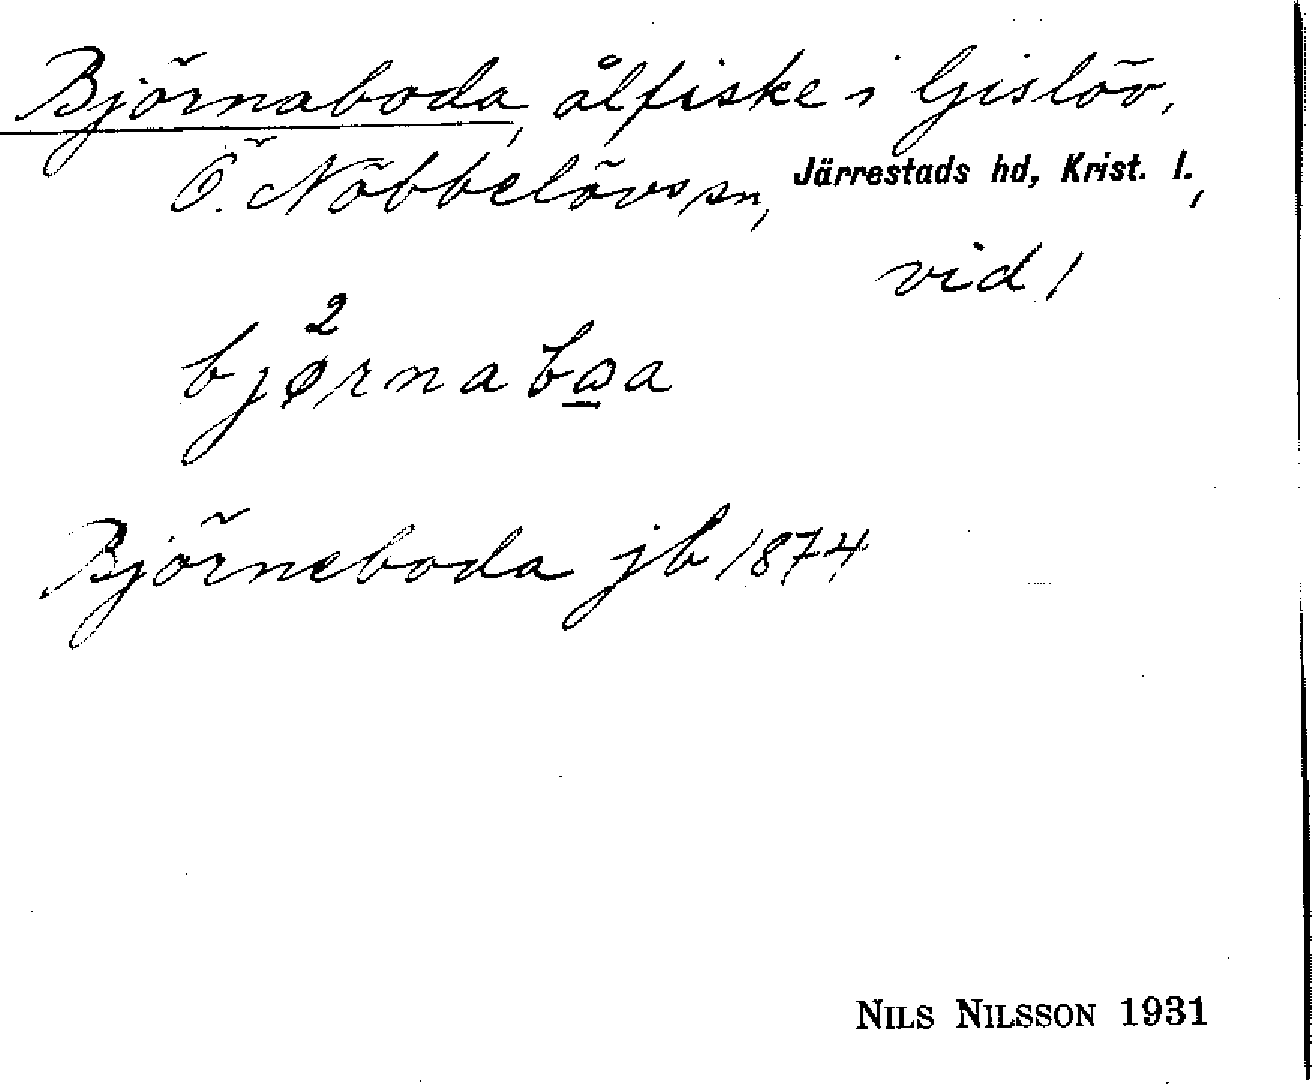 Björnaboda, ålfiske i Gislöv,
Ö. Nöbbelövs sn, Järrestads hd, Krist. l.,
vid 1
2
bjørnabꙍa
Björneboda jb 1874
NILS NILSSON 1931